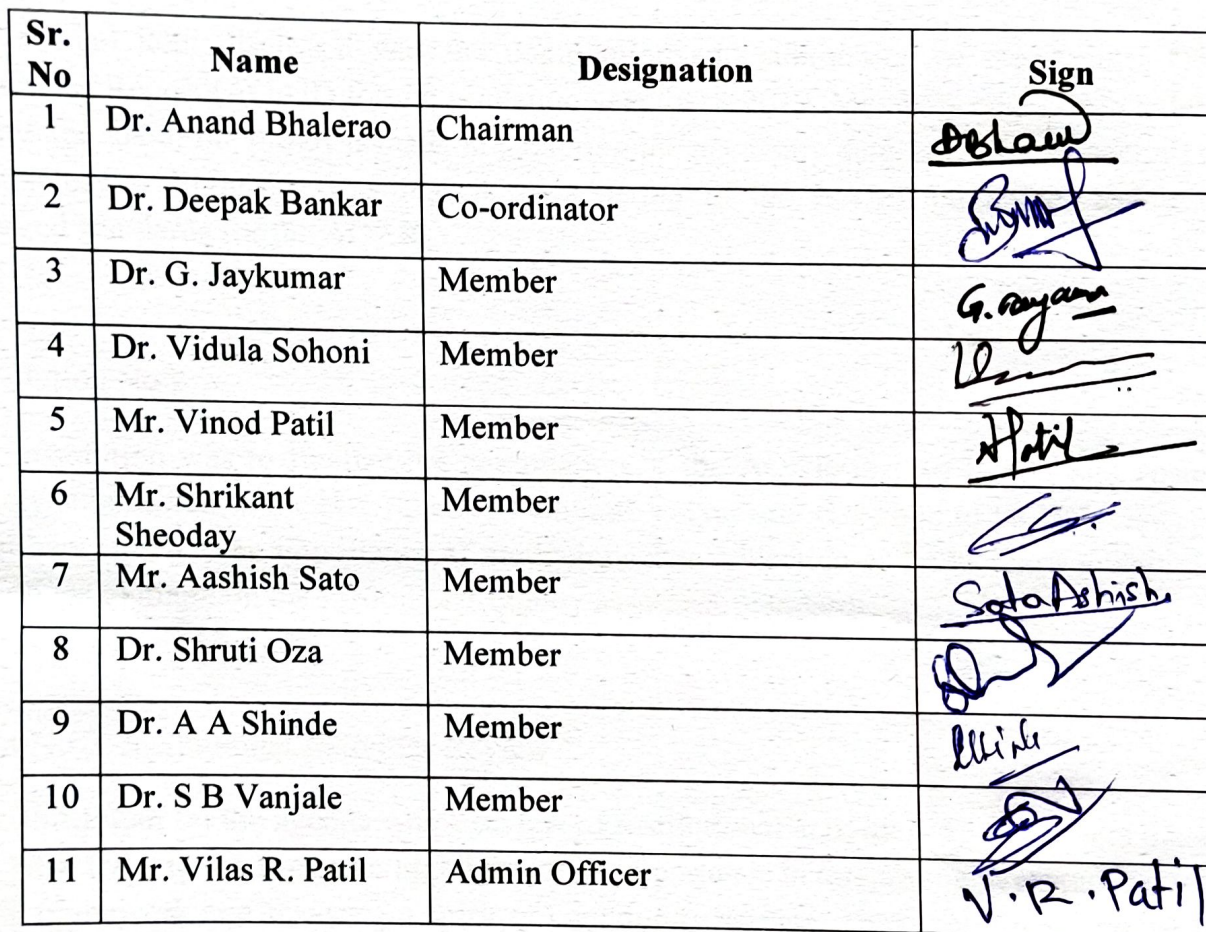 Sr. No Name Designation Sign
1 Dr. Anand Bhalerao Chairman
2 Dr. Deepak Bankar Co-ordinator
3 Dr. G. Jaykumar Member
4 Dr. Vidula Sohoni Member
5 Mr. Vinod Patil Member Patil
6 Mr. Shrikant
Sheoday Member
7 Mr. Aashish Sato Member Sata Ashish
8 Dr. Shruti Oza Member
9 Dr. A A Shinde Member
10 Dr. S B Vanjale Member
11 Mr. Vilas R. Patil Admin Officer V.R.Patil